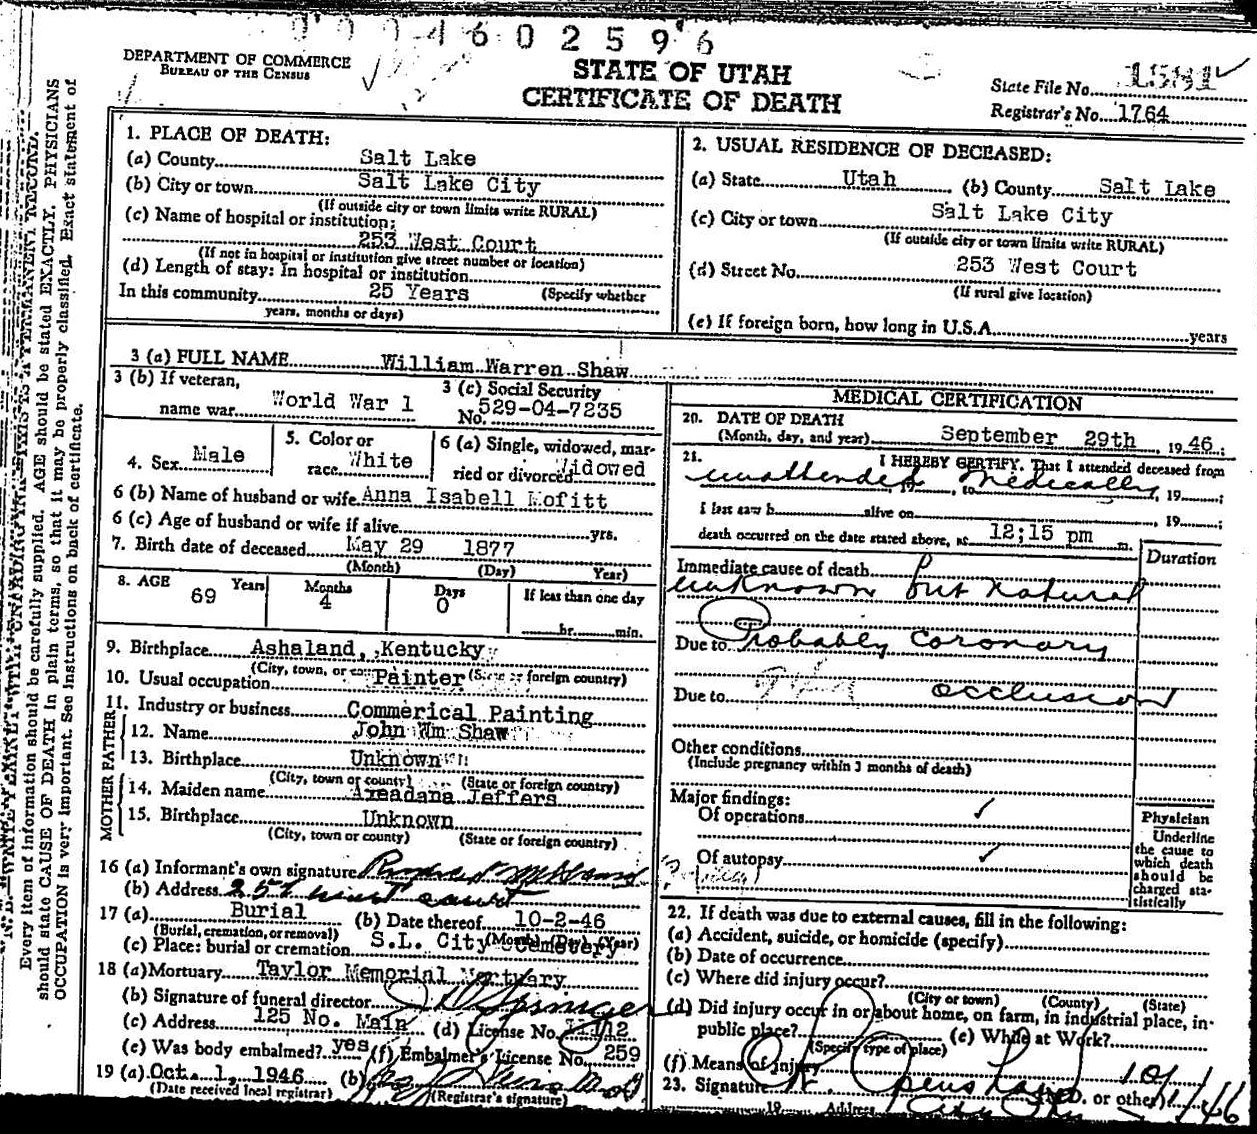 4 6 0 2 5 9 6
DEPARTMENT OF COMMERCE
BUREAU OF THE CENSUS
STATE OF UTAH
CERTIFICATE OF DEATH
State File No.
Registrar's No. 1764
N. B.—WRITE PLAINLY, WITH UNFADING INK—THIS IS A PERMANENT RECORD.
Every item of information should be carefully supplied. AGE should be stated EXACTLY. PHYSICIANS
should state CAUSE OF DEATH in plain terms, so that it may be properly classified. Exact statement of
OCCUPATION is very important. See instructions on back of certificate.
1. PLACE OF DEATH:
(a) County Salt Lake
(b) City or town Salt Lake City
(If outside city or town limits write RURAL)
(c) Name of hospital or institution:
253 West Court
(If not in hospital or institution give street number or location)
(d) Length of stay: In hospital or institution
In this community 25 Years (Specify whether
years, months or days)
2. USUAL RESIDENCE OF DECEASED:
(a) State Utah (b) County Salt Lake
(c) City or town Salt Lake City
(If outside city or town limits write RURAL)
(d) Street No. 253 West Court
(If rural give location)
(e) If foreign born, how long in U.S.A. years
3 (a) FULL NAME William Warren Shaw
3 (b) If veteran,
name war World War 1
3 (c) Social Security
No. 529-04-7235
4. Sex Male
5. Color or
race White
6 (a) Single, widowed, mar-
ried or divorced Widowed
6 (b) Name of husband or wife Anna Isabell Mofitt
6 (c) Age of husband or wife if alive yrs.
7. Birth date of deceased May 29 1877
(Month) (Day) Year)
8. AGE 69 Years 4 Months 0 Days If less than one day
hr. min.
9. Birthplace Ashaland, Kentucky
(City, town, or county) (State or foreign country)
10. Usual occupation Painter
11. Industry or business Commerical Painting
FATHER
12. Name John Wm Shaw
13. Birthplace Unknown
(City, town or county) (State or foreign country)
MOTHER
14. Maiden name Jeffers
15. Birthplace Unknown
(City, town or county) (State or foreign country)
16 (a) Informant's own signature
(b) Address west court
17 (a) Burial (b) Date thereof 10-2-46
(Burial, cremation, or removal) (Month) (Day) (Year)
(c) Place: burial or cremation S.L. City Cemetery
18 (a) Mortuary Taylor Memorial Mortuary
(b) Signature of funeral director Springer
(c) Address 125 No. Main (d) License No.
(e) Was body embalmed? yes (f) Embalmer's License No. 259
19 (a) Oct. 1, 1946 (b)
(Date received local registrar) (Registrar's signature)
MEDICAL CERTIFICATION
20. DATE OF DEATH
(Month, day, and year) September 29th 1946;
21. I HEREBY CERTIFY, That I attended deceased from
unattended medically, 19 to , 19 ;
I last saw h alive on , 19 ;
death occurred on the date stated above, at 12;15 pm m.
Duration
Immediate cause of death but natural
unknown
Due to Probably coronary
Due to occlusion
Other conditions
(Include pregnancy within 3 months of death)
Major findings:
Of operations ✓
Of autopsy ✓
Physician
Underline
the cause to
which death
should be
charged sta-
tistically
22. If death was due to external causes, fill in the following:
(a) Accident, suicide, or homicide (specify)
(b) Date of occurrence
(c) Where did injury occur?
(City or town) (County) (State)
(d) Did injury occur in or about home, on farm, in industrial place, in-
public place? (e) While at Work?
(Specify type of place)
(f) Means of injury
23. Signature (M.D. or other)
19 Address